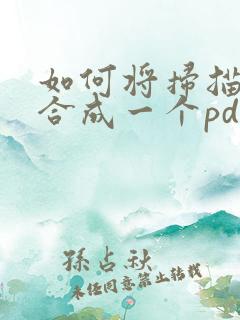 如何将掃描
合成一个pd
孫占秋
未经同意禁止转载